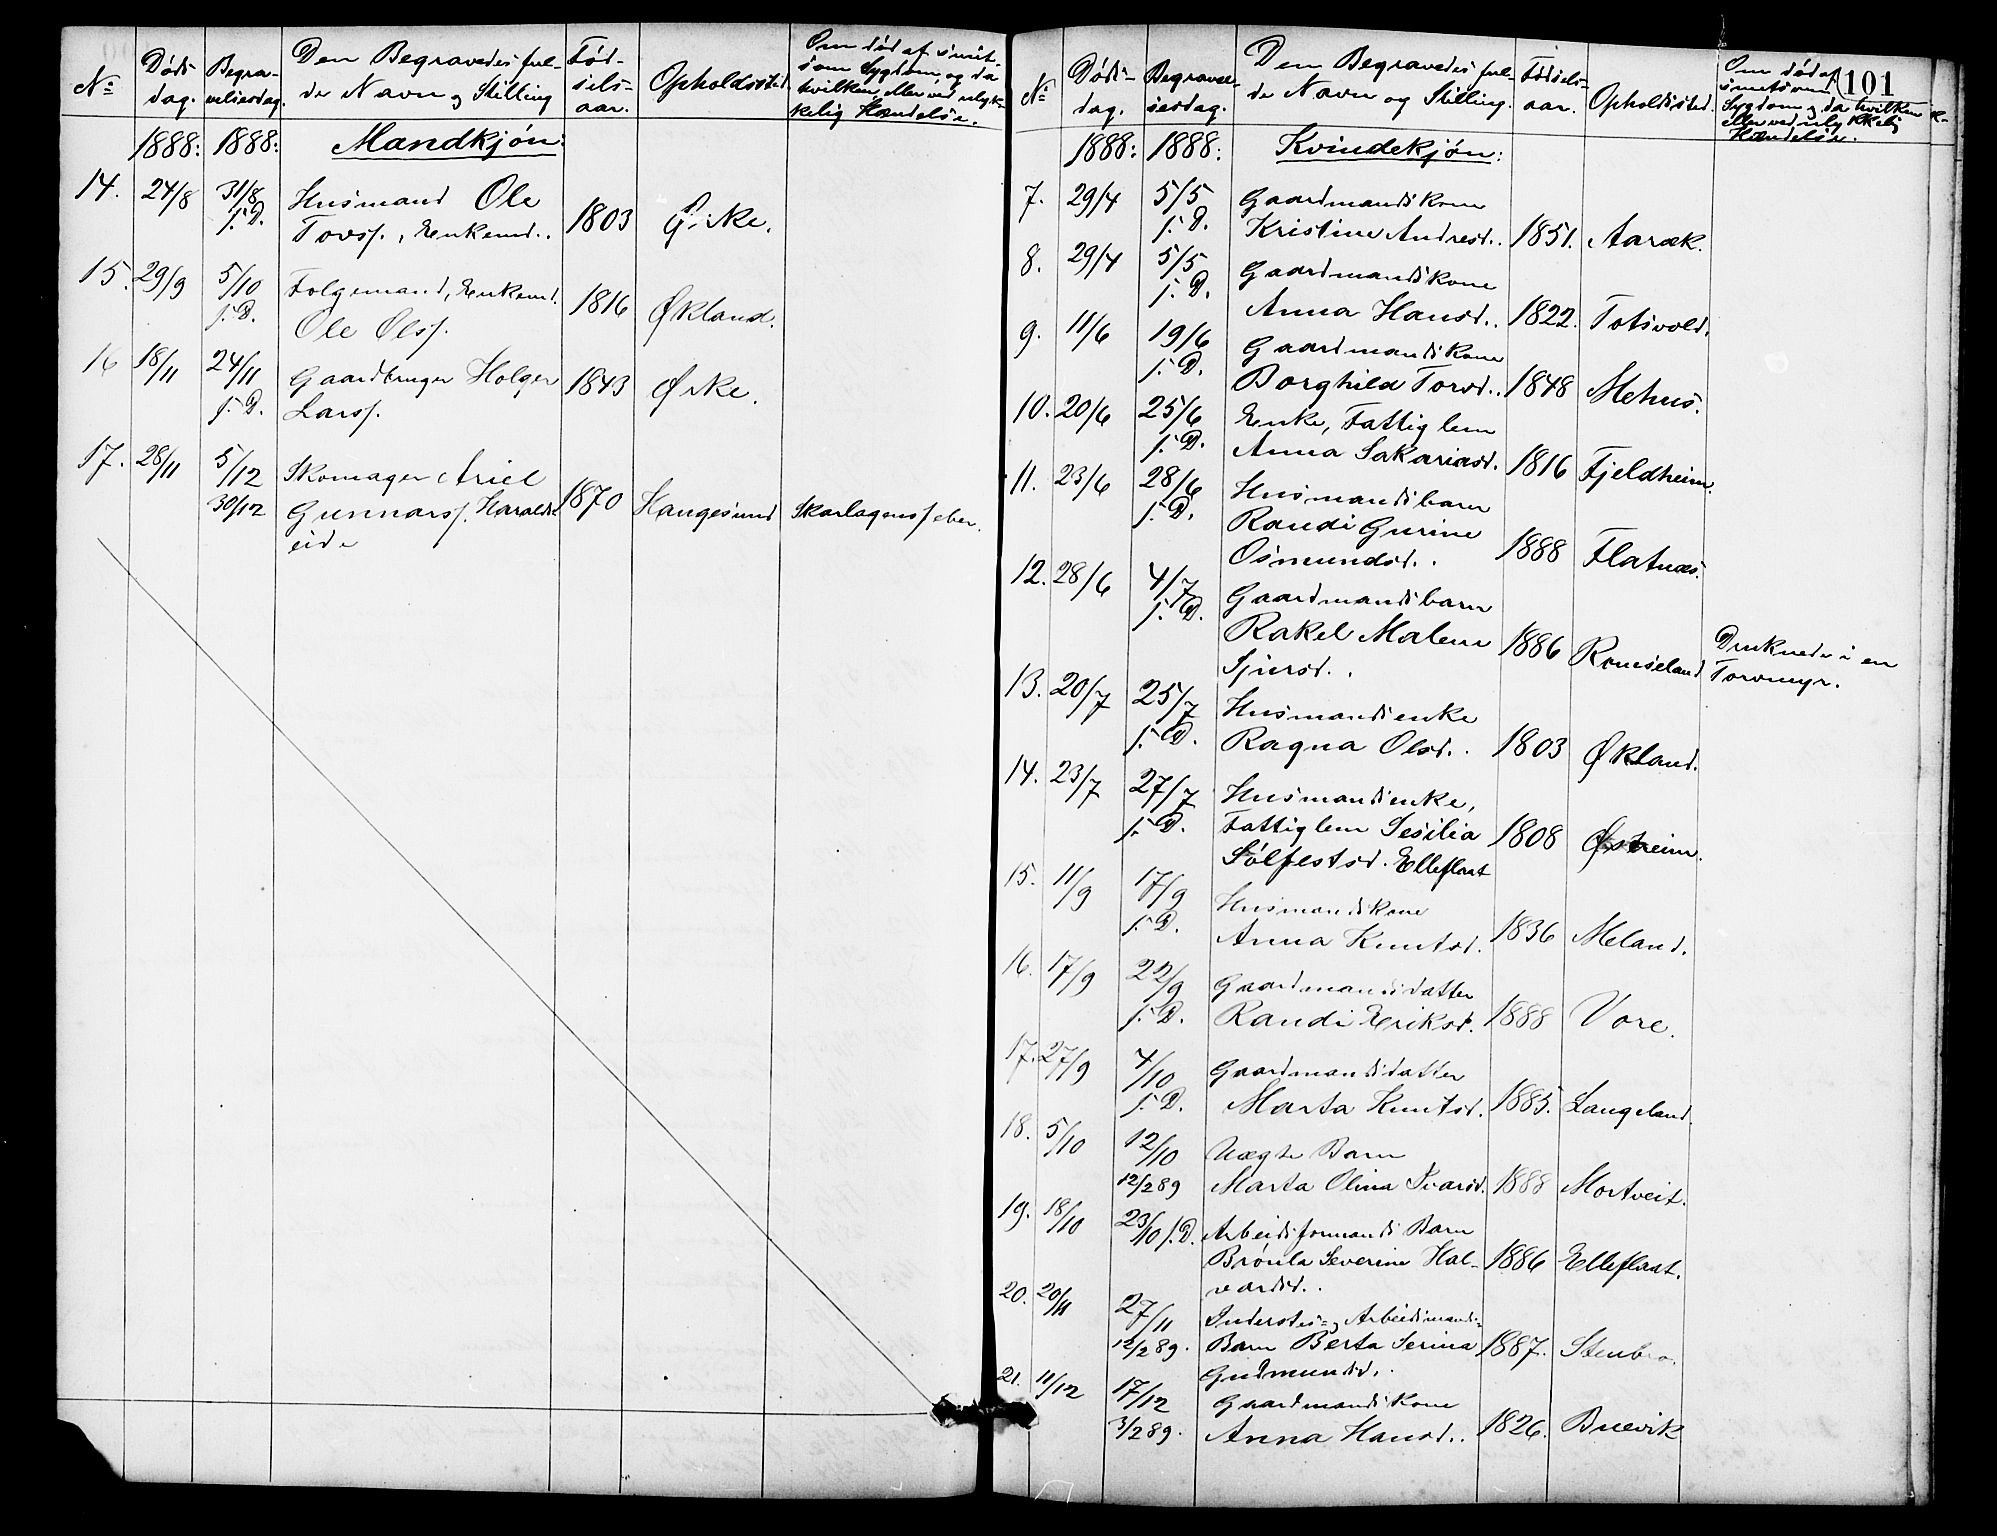 No Døds- dag. Begra- velsesdag. Den Begravedes ful- de Navn og Stilling Fød- sels- aar. Opholdssted. Om død af smit- som Sygdom, og da hvilken, eller ved ulyk- kelig Hændelse.
1888: 1888: Mandkjøn:
14. 24/8 31/8 Husmand Ole
f. D. Tovsf., Enkemd.. 1803 Ørke.
15. 29/9 5/10 Folgemand, Enkemd.
f. D. Ole Olsf. 1816 Økland.
16 18/11 24/11 Gaardbruger Holger 1843 Ørke.
f. D. Larsf.
17. 28/11 5/12 Skomager Ariel
30/12 Gunnarsf. Haralds- 1870 Haugesund Skarlagensfeber.
eide
101
No Døds- dag. Begravel- sesdag. Den Begravedes ful- de Navn og Stilling. Fødsels- aar. Opholdssted. Om død af smitsom Sygdom og da hvilken eller ved ulykkelig Hændelse.
1888: 1888: Kvindekjøn:
7. 29/4 5/5 Gaardmandskone
f. D. Kristine Andresd.. 1851. Aaræk.
8. 29/4 5/5 Gaardmandskone
f. D. Anna Hansd.. 1822. Totsvold.
9. 11/6 19/6 Gaardmandskone
f. D. Borghild Torsd.. 1848 Mehus.
10. 20/6 25/6 Enke, Fattiglem
f. D. Anna Sakariasd. 1816 Fjeldheim.
11. 23/6 28/6 Husmandsbarn
f. D. Randi Gurine
Osmundsd.. 1888 Flatnæs.
12. 28/6 4/7 Gaardmandsbarn
f. D. Rakel Malene 1886 Ramseland Druknede i en
Sjursd.. Torvmyr.
13. 20/7 25/7 Husmandsenke
f. D. Ragna Olsd.. 1803 Økland.
14. 23/7 27/7 Husmandsenke,
f. D. Fattiglem Sesilia 1808 Østreim.
Sølfestsd. Elleflaat
15. 11/9 17/9 Husmandskone
f. D. Anna Knutsd. 1836 Meland.
16. 17/9 22/9 Gaardmandsdatter
f. D. Randi Eriksd. 1888 Vore.
17. 27/9 4/10 Gaardmandsdatter
f. D. Marta Knutsd. 1885. Langeland.
18. 5/10 12/10 Uægte Barn
12/2 89 Marta Olina Ivarsd. 1888 Mortveit.
19. 18/10 23/10 f. D. Arbeidsformands Barn
Brønla Severine Hal- 1886 Elleflaat.
vardsd..
20. 20/11 27/11 Inderstes- og Arbeidsmands-
12/2 89. Barn Berta Serina 1887. Stenbro.
Gudmundsd.
21. 11/12 17/12 Gaardmandskone
3/2 89. Anna Hansd.. 1826. Buevik